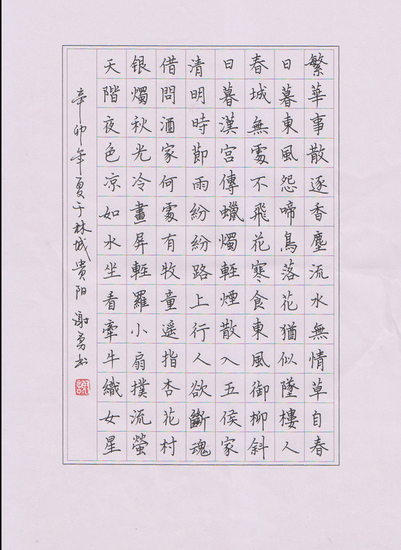 繁華事散逐香塵流水無情草自春
日暮東風怨啼鳥落花猶似墜樓人
春城無處不飛花寒食東風御柳斜
日暮漢宮傳蠟燭輕煙散入五侯家
清明時節雨紛紛路上行人欲斷魂
借問酒家何處有牧童遥指杏花村
银燭秋光冷畫屏輕羅小扇撲流螢
天階夜色凉如水坐看牽牛織女星
辛卯年夏于林城贵阳 谢勇书